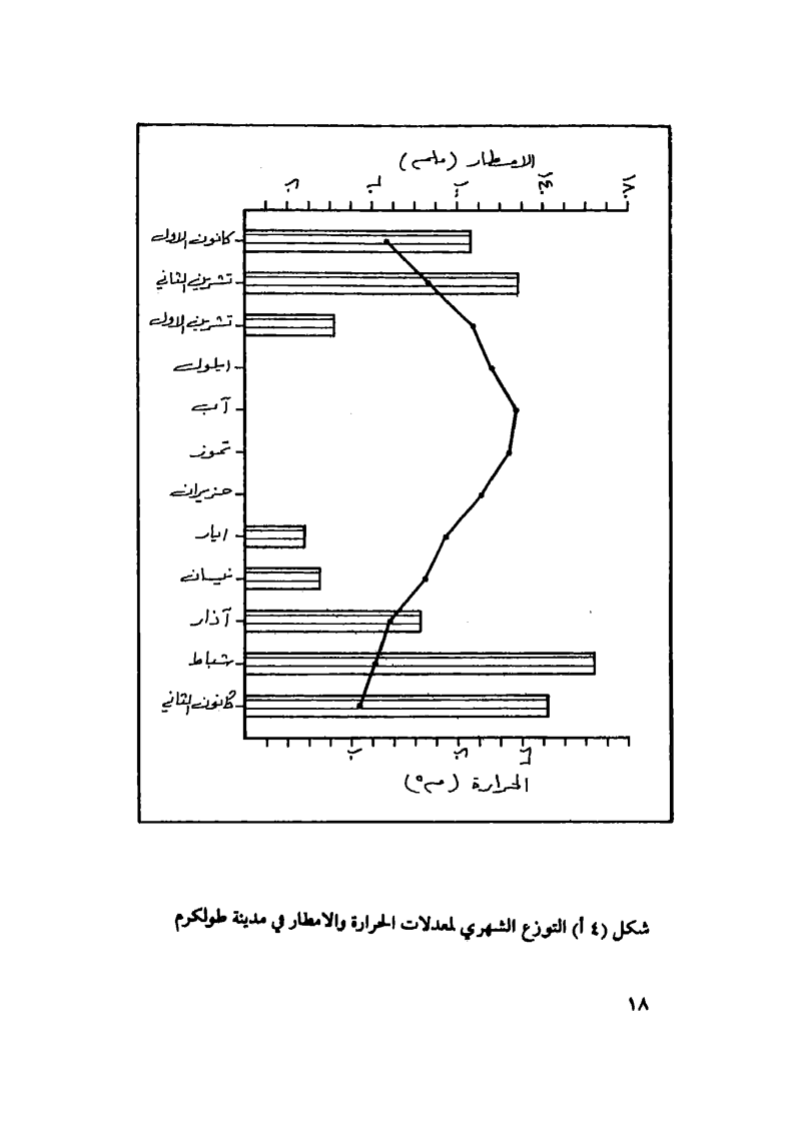 الامطار (ملم)
٢٠ ٦٠ ١٠٠ ١٤٠ ١٨٠
كانون الاول
تشرين الثاني
تشرين الاول
ايلول
آب
تموز
حزيران
ايار
نيسان
آذار
شباط
كانون الثاني
١٠ ٢٠
الحرارة (م°)
شكل (٤ أ) التوزع الشهري لمعدلات الحرارة والامطار في مدينة طولكرم
١٨